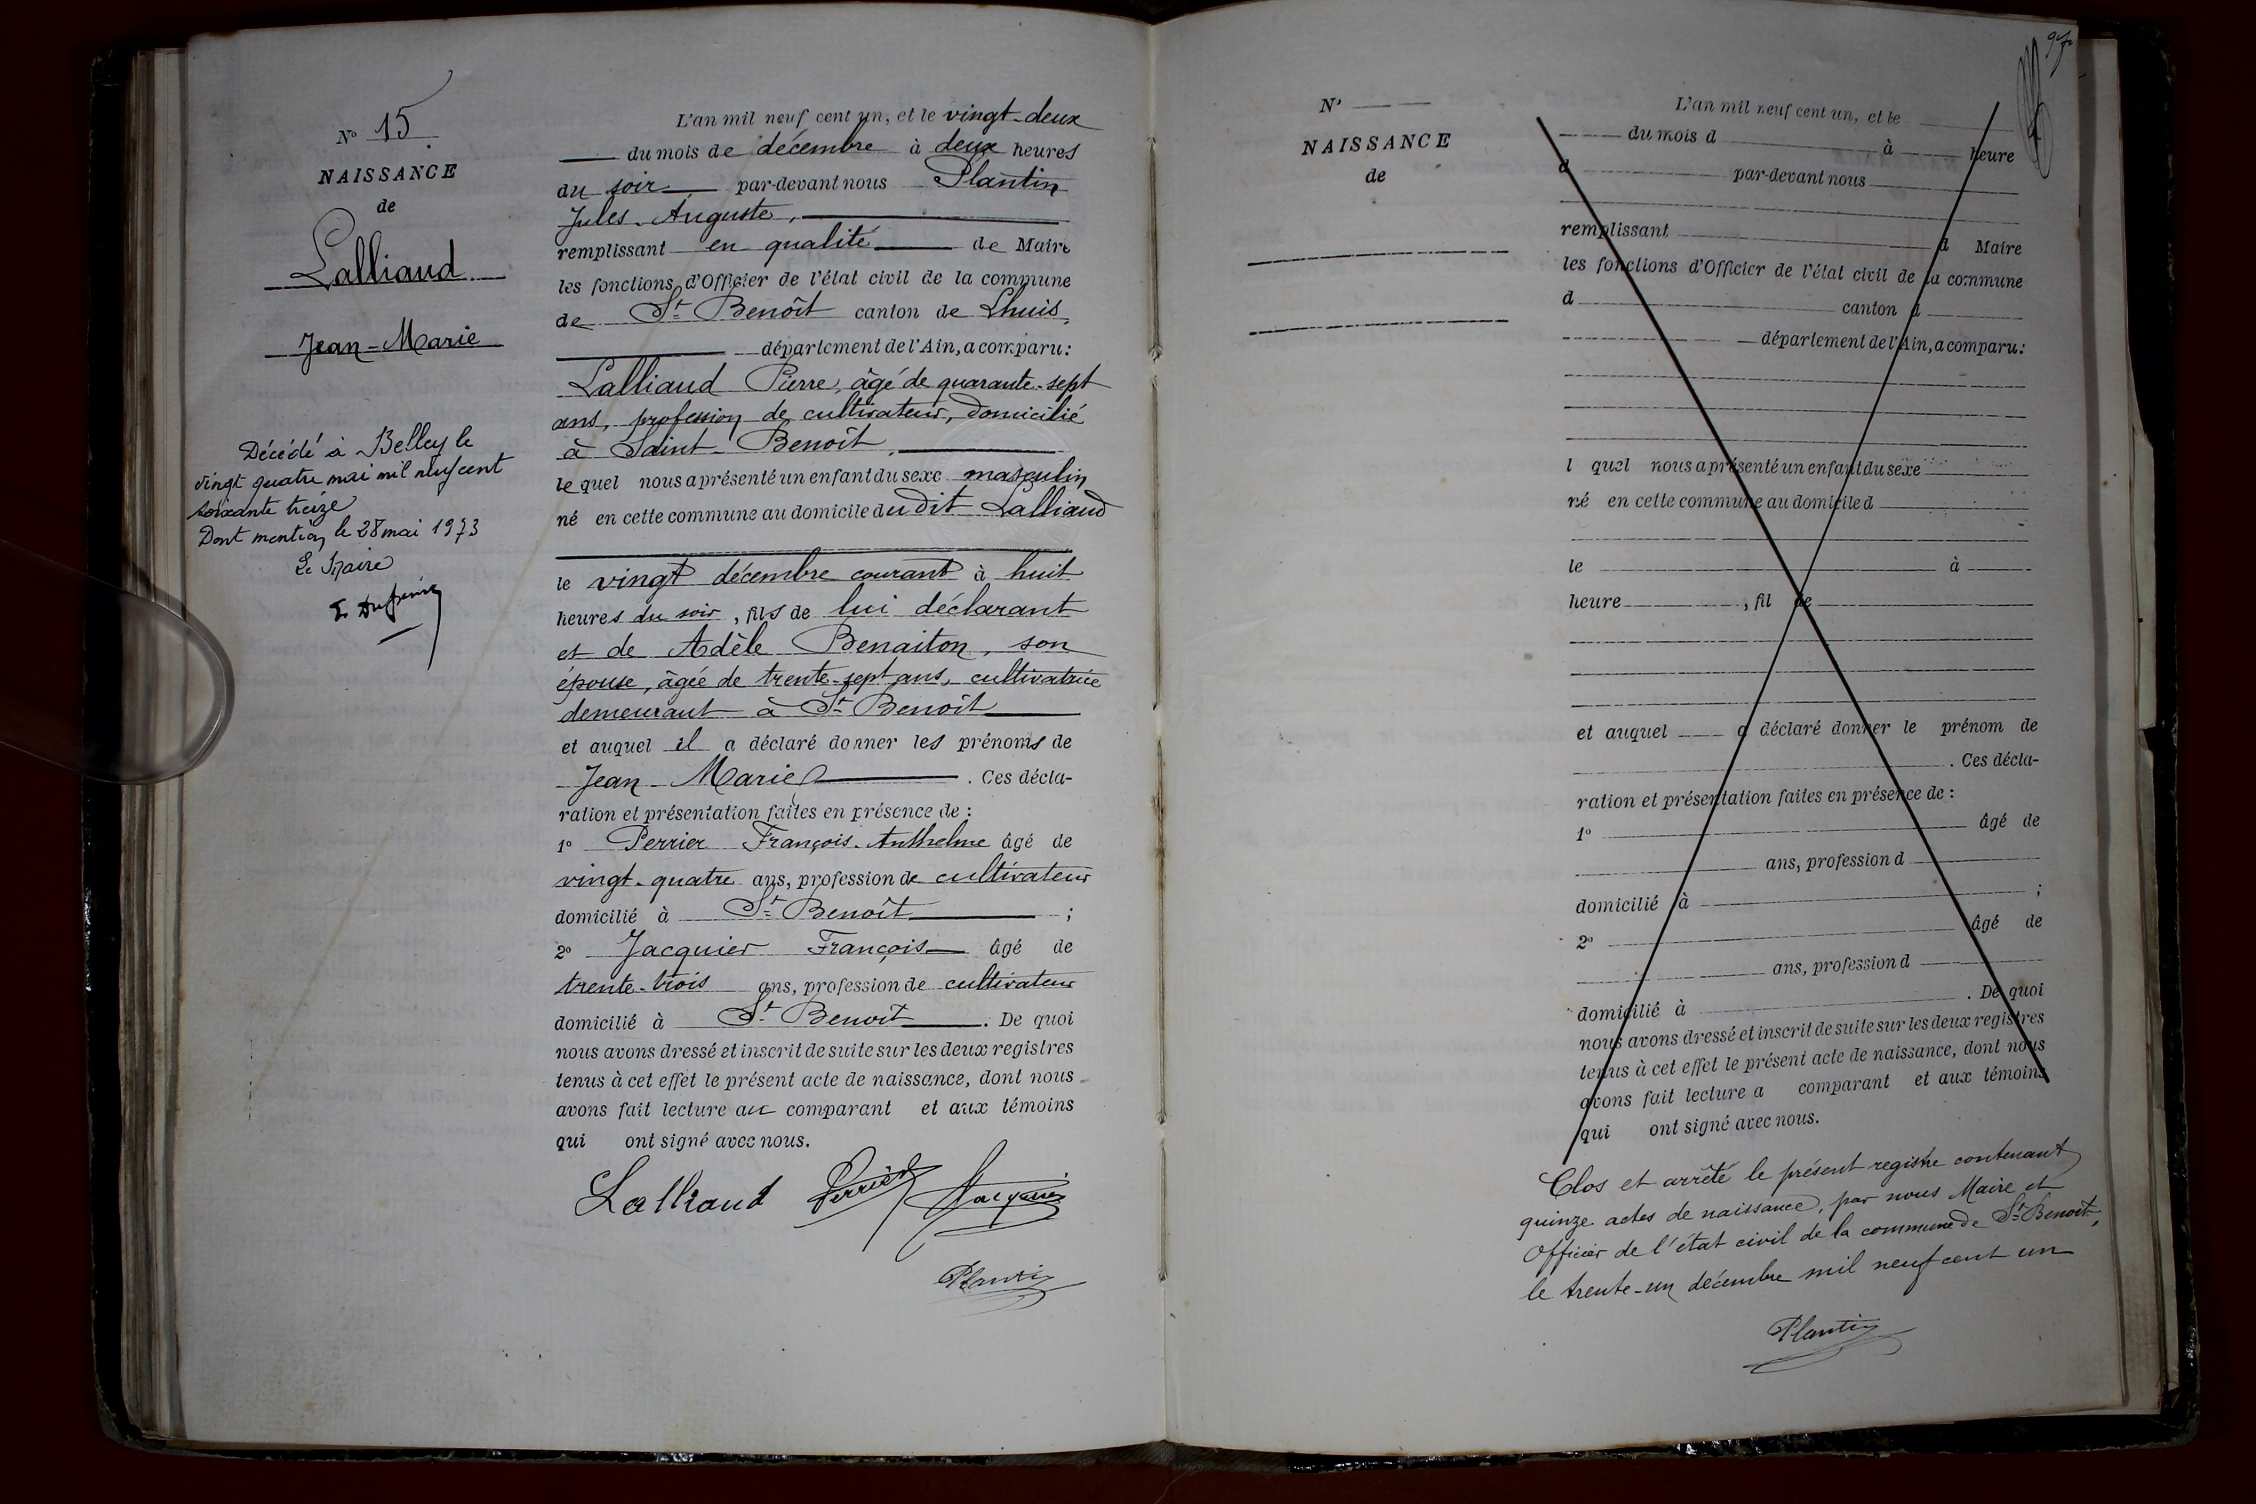 N° 15
NAISSANCE
de
Lalliaud
Jean-Marie
Décédé à Belley le
vingt quatre mai mil neuf cent
soixante treize
Dont mention le 28 mai 1973
Le Maire
L'an mil neuf cent un, et le vingt-deux
du mois de décembre à deux heures
du soir par-devant nous Plantin
Jules-Auguste,
remplissant en qualité de Maire
les fonctions d'Officier de l'état civil de la commune
de St Benoît canton de Lhuis,
département de l'Ain, a comparu:
Lalliaud Pierre, âgé de quarante-sept
ans, profession de cultivateur, domicilié
à Saint-Benoît,
lequel nous a présenté un enfant du sexe masculin
né en cette commune au domicile du dit Lalliaud
le vingt décembre courant à huit
heures du soir, fils de lui déclarant
et de Adèle Benaiton, son
épouse, âgée de trente-sept ans, cultivatrice
demeurant à St Benoît
et auquel il a déclaré donner les prénoms de
Jean-Marie. Ces décla-
ration et présentation faites en présence de:
1° Perrier François-Anthelme âgé de
vingt-quatre ans, profession de cultivateur
domicilié à St Benoît;
2° Jacquier François âgé de
trente-trois ans, profession de cultivateur
domicilié à St Benoît. De quoi
nous avons dressé et inscrit de suite sur les deux registres
tenus à cet effet le présent acte de naissance, dont nous
avons fait lecture au comparant et aux témoins
qui ont signé avec nous.
Lalliaud Perrier Jacquier
Plantin
97
N°
NAISSANCE
de
L'an mil neuf cent un, et le
du mois d à heure
d par-devant nous
remplissant d Maire
les fonctions d'Officier de l'état civil de la commune
d canton d
département de l'Ain, a comparu:
l quel nous a présenté un enfant du sexe
né en cette commune au domicile d
le à
heure , fil de
et auquel a déclaré donner le prénom de
. Ces décla-
ration et présentation faites en présence de:
1° âgé de
ans, profession d
domicilié à ;
2° âgé de
ans, profession d
domicilié à . De quoi
nous avons dressé et inscrit de suite sur les deux registres
tenus à cet effet le présent acte de naissance, dont nous
avons fait lecture a comparant et aux témoins
qui ont signé avec nous.
Clos et arrêté le présent registre contenant
quinze actes de naissance, par nous Maire et
Officier de l'état civil de la commune de St Benoît,
le trente-un décembre mil neuf cent un
Plantin